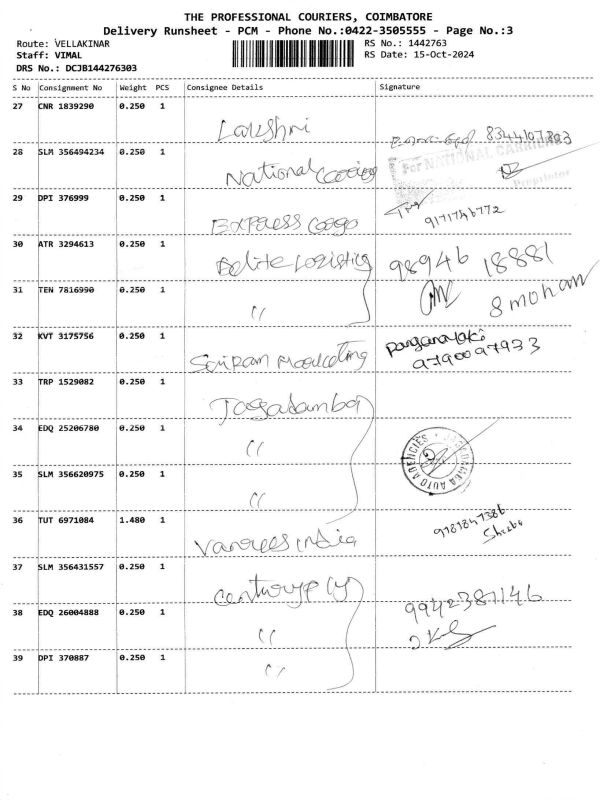 THE PROFESSIONAL COURIERS, COIMBATORE
Delivery Runsheet - PCM - Phone No.:0422-3505555 - Page No.:3
Route: VELLAKINAR RS No.: 1442763
Staff: VIMAL RS Date: 15-Oct-2024
DRS No.: DCJB144276303
S No Consignment No Weight PCS Consignee Details Signature
27 CNR 1839290 0.250 1 Lakshmi 8344107303
28 SLM 356494234 0.250 1 National For NATIONAL CARRIERS
Proprietor
29 DPI 376999 0.250 1 Express Cargo 9171746772
30 ATR 3294613 0.250 1 Logistics 98946 18881
31 TEN 7816990 0.250 1 ,, 8 mohan
32 KVT 3175756 0.250 1 Sriram Marketing 9790097933
33 TRP 1529082 0.250 1 Jagadamba
34 EDQ 25206780 0.250 1 ,, JAGADAMBA AUTO AGENCIES
35 SLM 356620975 0.250 1 ,,
36 TUT 6971084 1.480 1 india 9787847386
37 SLM 356431557 0.250 1 Centuryply
38 EDQ 26004888 0.250 1 ,, 9942387146
39 DPI 370887 0.250 1 ,,